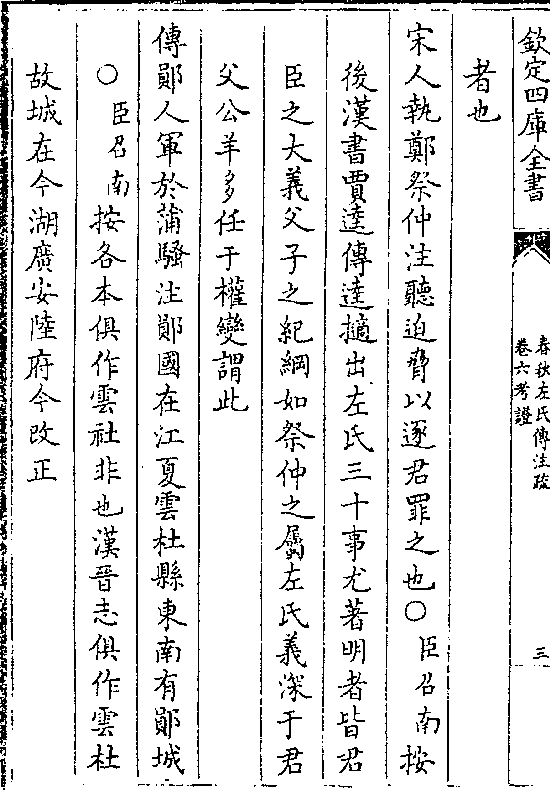 欽定四庫全書
春秋左氏傳注疏
卷六考證
三
者也
宋人執鄭祭仲注聽迫脅以逐君罪之也○臣召南按
後漢書賈逵傳逵摘出左氏三十事尤著明者皆君
臣之大義父子之紀綱如祭仲之屬左氏義深于君
父公羊多任于權變謂此
傳鄖人軍於蒲騷注鄖國在江夏雲杜縣東南有鄖城
○臣召南按各本俱作雲社非也漢晉志俱作雲杜
故城在今湖廣安陸府今改正